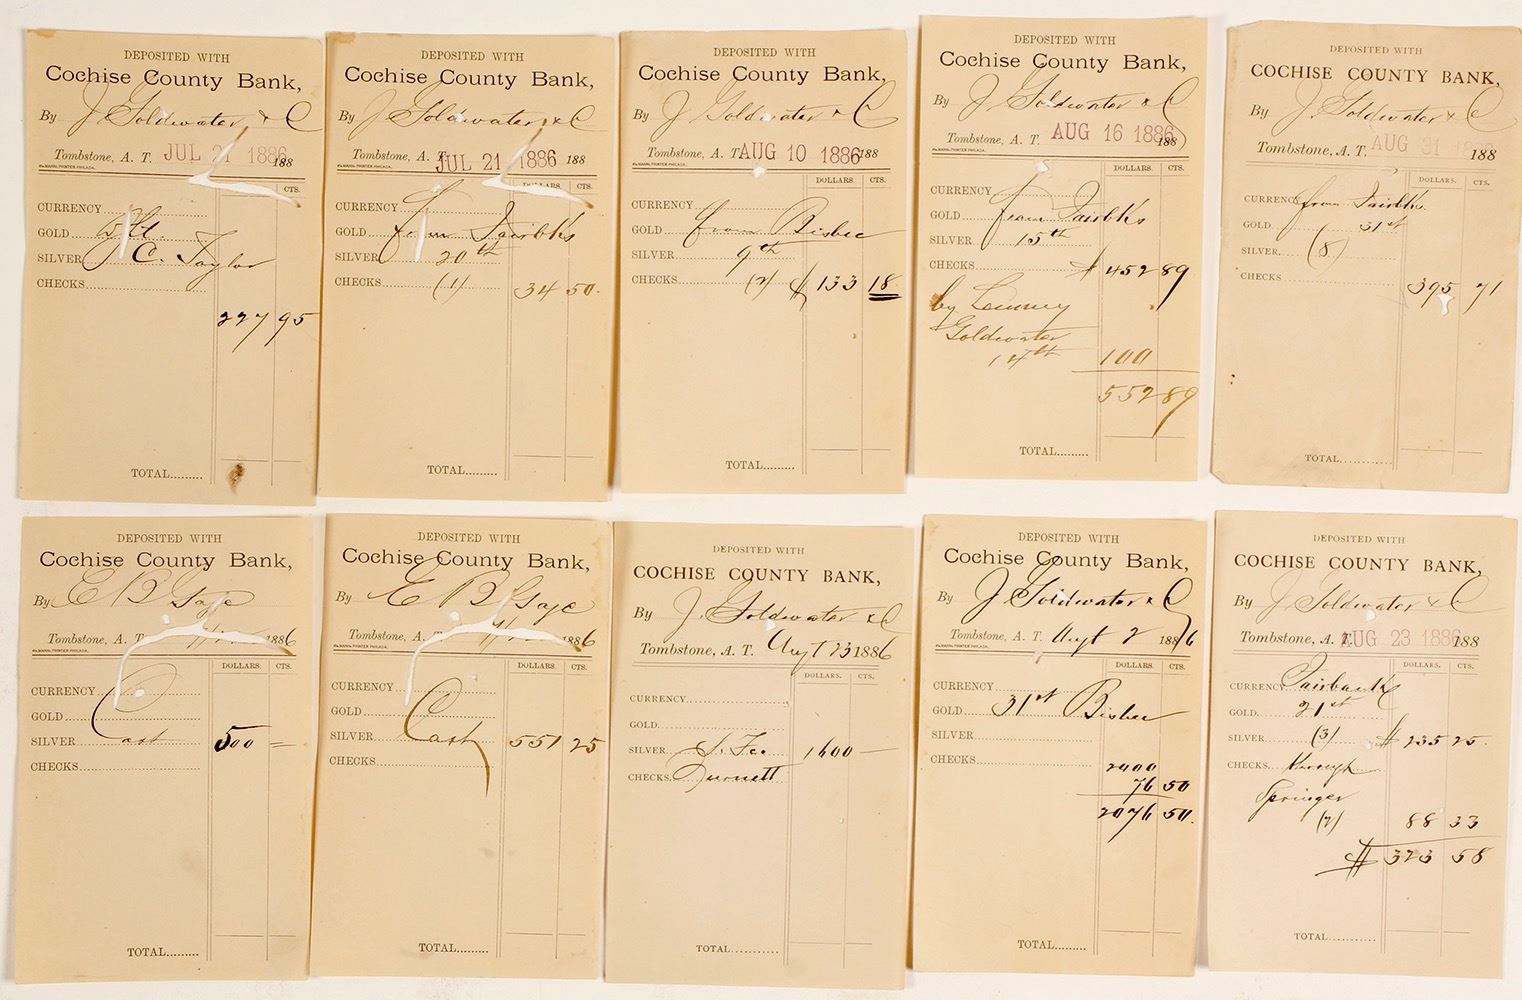 DEPOSITED WITH
Cochise County Bank,
By J Goldwater & C
Tombstone, A. T. JUL 21 1886 188
McMANN, PRINTER PHILADA.
CTS.
CURRENCY
GOLD
SILVER C. Taylor
CHECKS
227 95
TOTAL
DEPOSITED WITH
Cochise County Bank,
By J Goldwater & C
Tombstone, A. T. JUL 21 1886 188
DOLLARS. CTS.
CURRENCY
GOLD from Fairbks
SILVER 20th
CHECKS (1) 34 50
TOTAL
DEPOSITED WITH
Cochise County Bank,
By J Goldwater & C
Tombstone, A. T. AUG 10 1886 188
DOLLARS. CTS.
CURRENCY
GOLD from Bisbee
SILVER 9th
CHECKS (2) $ 133 18
TOTAL
DEPOSITED WITH
Cochise County Bank,
By J Goldwater & C
Tombstone, A. T. AUG 16 1886 188
DOLLARS. CTS.
CURRENCY
GOLD from Fairbks
SILVER 15th
CHECKS $ 452 89
by Lemuey
Goldwater
14th 100
552 89
TOTAL
DEPOSITED WITH
COCHISE COUNTY BANK,
By J. Goldwater & C
Tombstone, A. T. AUG 31 188
DOLLARS. CTS.
CURRENCY from Fairbks.
GOLD 31st
SILVER (8)
CHECKS
395 71
TOTAL
DEPOSITED WITH
Cochise County Bank,
By E B Gage
Tombstone, A. T. 1886
DOLLARS. CTS.
CURRENCY
GOLD
SILVER Cash 500 —
CHECKS
TOTAL
DEPOSITED WITH
Cochise County Bank,
By E B Gage
Tombstone, A. T. 1886
DOLLARS. CTS.
CURRENCY
GOLD
SILVER Cash 551 25
CHECKS
TOTAL
DEPOSITED WITH
COCHISE COUNTY BANK,
By J. Goldwater & C
Tombstone, A. T. Augt 23 1886
DOLLARS. CTS.
CURRENCY
GOLD
SILVER 1600 —
CHECKS Burnett
TOTAL
DEPOSITED WITH
Cochise County Bank,
By J Goldwater & C
Tombstone, A. T. Augt 2 1886
DOLLARS. CTS.
CURRENCY
GOLD 31st Bisbee
SILVER
CHECKS 2000
76 50
2076 50
TOTAL
DEPOSITED WITH
COCHISE COUNTY BANK,
By J. Goldwater & C
Tombstone, A. T. AUG 23 1886 188
DOLLARS. CTS.
CURRENCY Fairbank
GOLD 21st
SILVER (3) $ 235 25
CHECKS through
Springer
(2) 88 33
$ 323 58
TOTAL